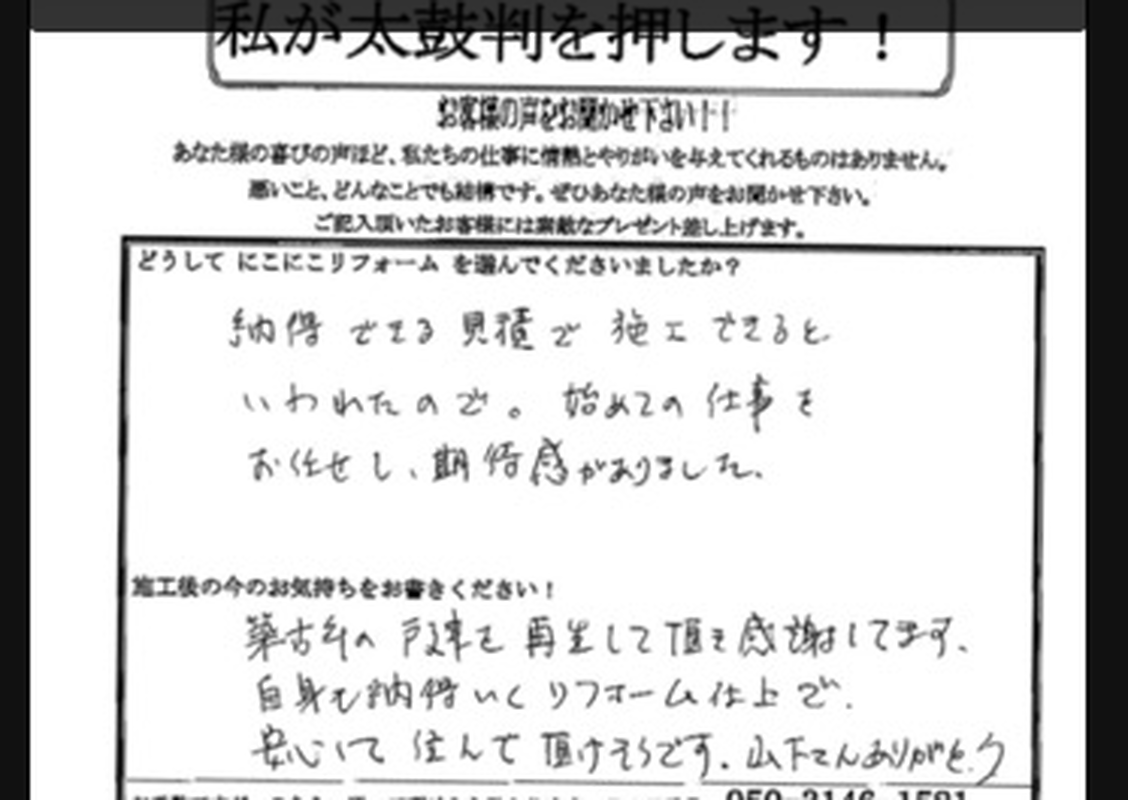 私が太鼓判を押します！
お客様の声をお聞かせ下さい！！
あなた様の喜びの声ほど、私たちの仕事に情熱とやりがいを与えてくれるものはありません。
悪いこと、どんなことでも結構です。ぜひあなた様の声をお聞かせ下さい。
ご記入頂いたお客様には素敵なプレゼント差し上げます。
どうして にこにこリフォーム を選んでくださいましたか？
納得できる見積で施工できると
いわれたので。始めての仕事を
お任せし、期待感がありました。
施工後の今のお気持ちをお書きください！
築古年の戸建を再生して頂き感謝してます。
自身も納得いくリフォーム仕上で、
安心して住んで頂けそうです。山下さんありがとう
050-3146-1581